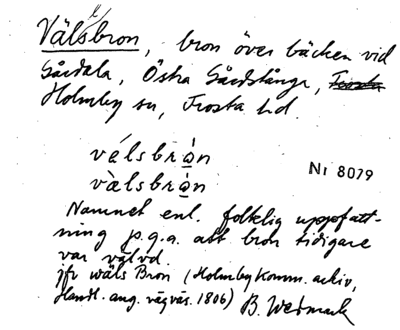 Välsbron, bron över bäcken vid
Gårdala, Östra Gårdstånga, Frosta
Holmby sn, Frosta hd.
vélsbrạ̀n
vὲlsbrạ̀n
Nr 8079
Namnet enl. folklig uppfatt-
ning p.g.a. att bron tidigare
var välvd.
jfr wäls Bron (Holmby komm. arkiv,
Handl. ang. vägväs. 1806) B. Wedmark